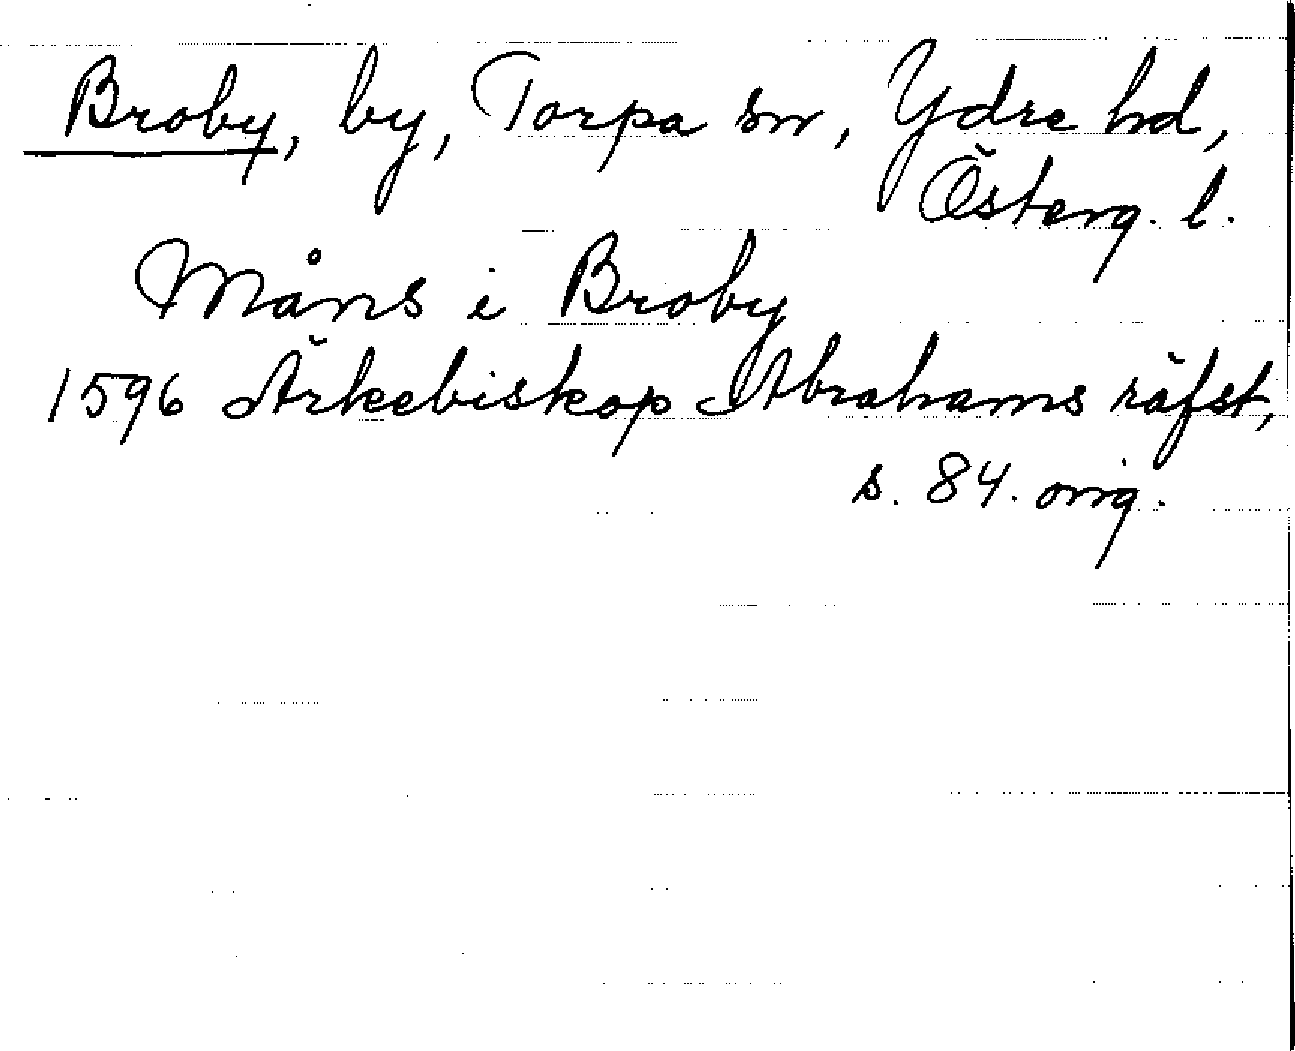 Broby, by, Torpa sn, Ydre hd,
Österg. l.
Måns i Broby
1596 Ärkebiskop Abrahams räfst,
s. 84. orig.